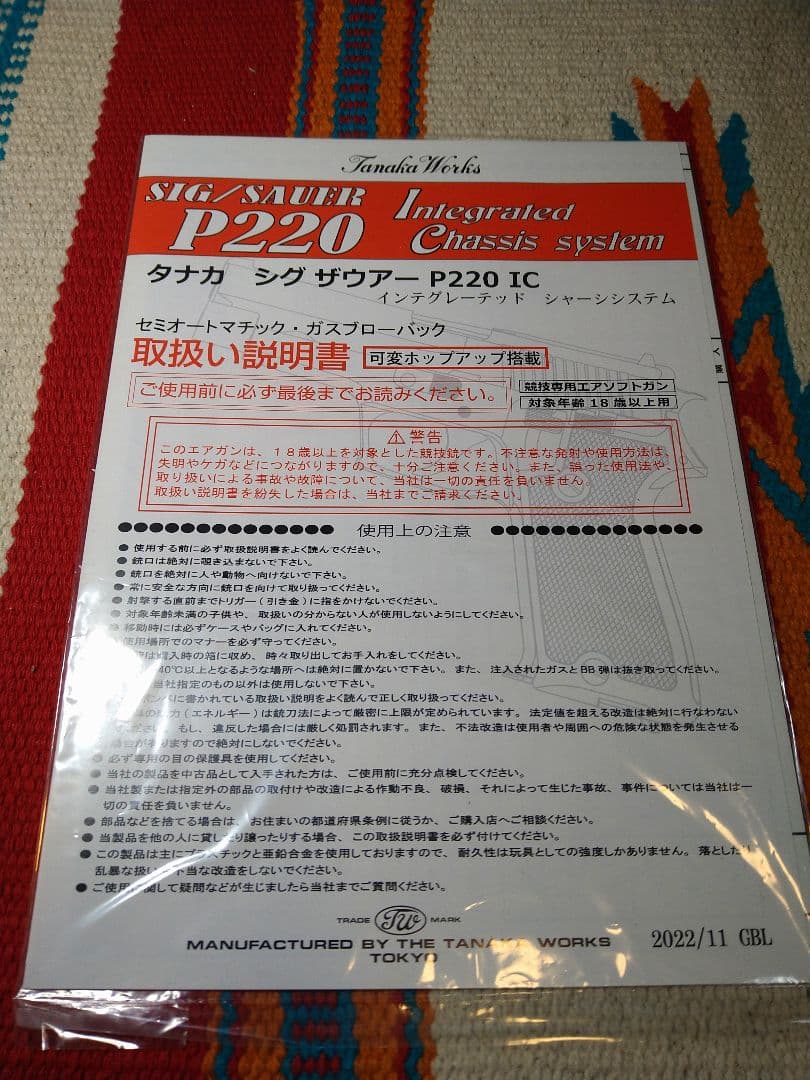 Tanaka Works
SIG/SAUER
P220
Integrated
Chassis system
タナカ シグ ザウアー P220 IC
インテグレーテッド シャーシシステム
セミオートマチック・ガスブローバック
取扱い説明書 可変ホップアップ搭載
ご使用前に必ず最後までお読みください。
競技専用エアソフトガン
対象年齢18歳以上用
⚠警告
このエアガンは、18歳以上を対象とした競技銃です。不注意な発射や使用方法は、
失明やケガなどにつながりますので、十分ご注意ください。また、誤った使用法や、
取り扱いによる事故や故障について、当社は一切の責任を負いません。
取扱い説明書を紛失した場合は、当社までご請求ください。
●●●●●●●●●●●●●● 使用上の注意 ●●●●●●●●●●●●●●
●使用する前に必ず取扱説明書をよく読んでください。
●銃口は絶対に覗き込まないで下さい。
●銃口を絶対に人や動物へ向けないで下さい。
●常に安全な方向に銃口を向けて取り扱ってください。
●射撃する直前までトリガー(引き金)に指をかけないでください。
●対象年齢未満の子供や、取扱いの分からない人が使用しないようにしてください。
●移動時には必ずケースやバッグに入れてください。
使用場所でのマナーを必ず守ってください。
は購入時の箱に収め、時々取り出してお手入れをしてください。
40℃以上となるような場所へは絶対に置かないで下さい。また、注入されたガスとBB弾は抜き取ってください。
当社指定のもの以外は使用しないで下さい。
に書かれている取扱い説明をよく読んで正しく取り扱ってください。
(エネルギー)は銃刀法によって厳密に上限が定められています。法定値を超える改造は絶対に行なわない
もし、違反した場合には厳しく処罰されます。また、不法改造は使用者や周囲への危険な状態を発生させる
場合がありますので絶対にしないでください。
●必ず専用の目の保護具を使用してください。
●当社の製品を中古品として入手された方は、ご使用前に充分点検してください。
●当社製または指定外の部品の取付けや改造による作動不良、破損、それによって生じた事故、事件については当社は一
切の責任を負いません。
●部品などを捨てる場合は、お住まいの都道府県条例に従うか、ご購入店へご相談ください。
●当製品を他の人に貸したり譲ったりする場合、この取扱説明書を必ず付けてください。
●この製品は主にプラスチックと亜鉛合金を使用しておりますので、耐久性は玩具としての強度しかありません。落としたり
乱暴な扱い、不当な改造をしないでください。
●ご使用に関して疑問などが生じましたら当社までご質問ください。
TRADE TW MARK
MANUFACTURED BY THE TANAKA WORKS
TOKYO
2022/11 GBL